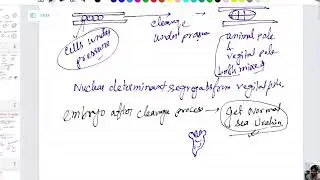 cells under
pressure
cleavage
under pressure
animal pole
&
vegital pole
both mixed
Nuclear determinant segregates from vegital pole.
embryo after cleavage process → get normal
sea Urchin